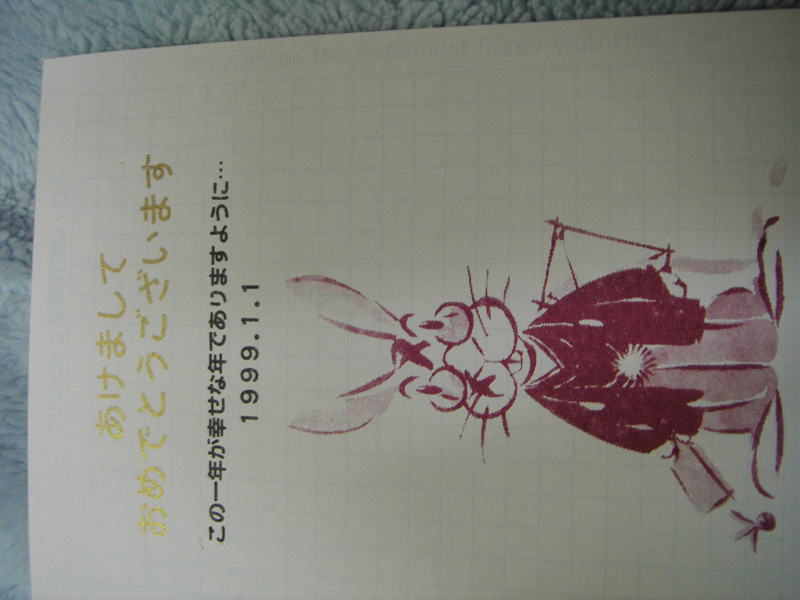 あけまして
おめでとうございます
この一年が幸せな年でありますように…
1999.1.1